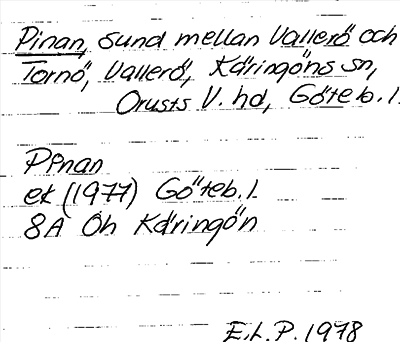 Pinan, sund mellan Vallerö och
Tornö, Vallerö, Käringöns sn,
Orusts V. hd, Göteb. l.
Pinan
ek (1977) Göteb. l.
8A Öh Käringön
E.L.P. 1978